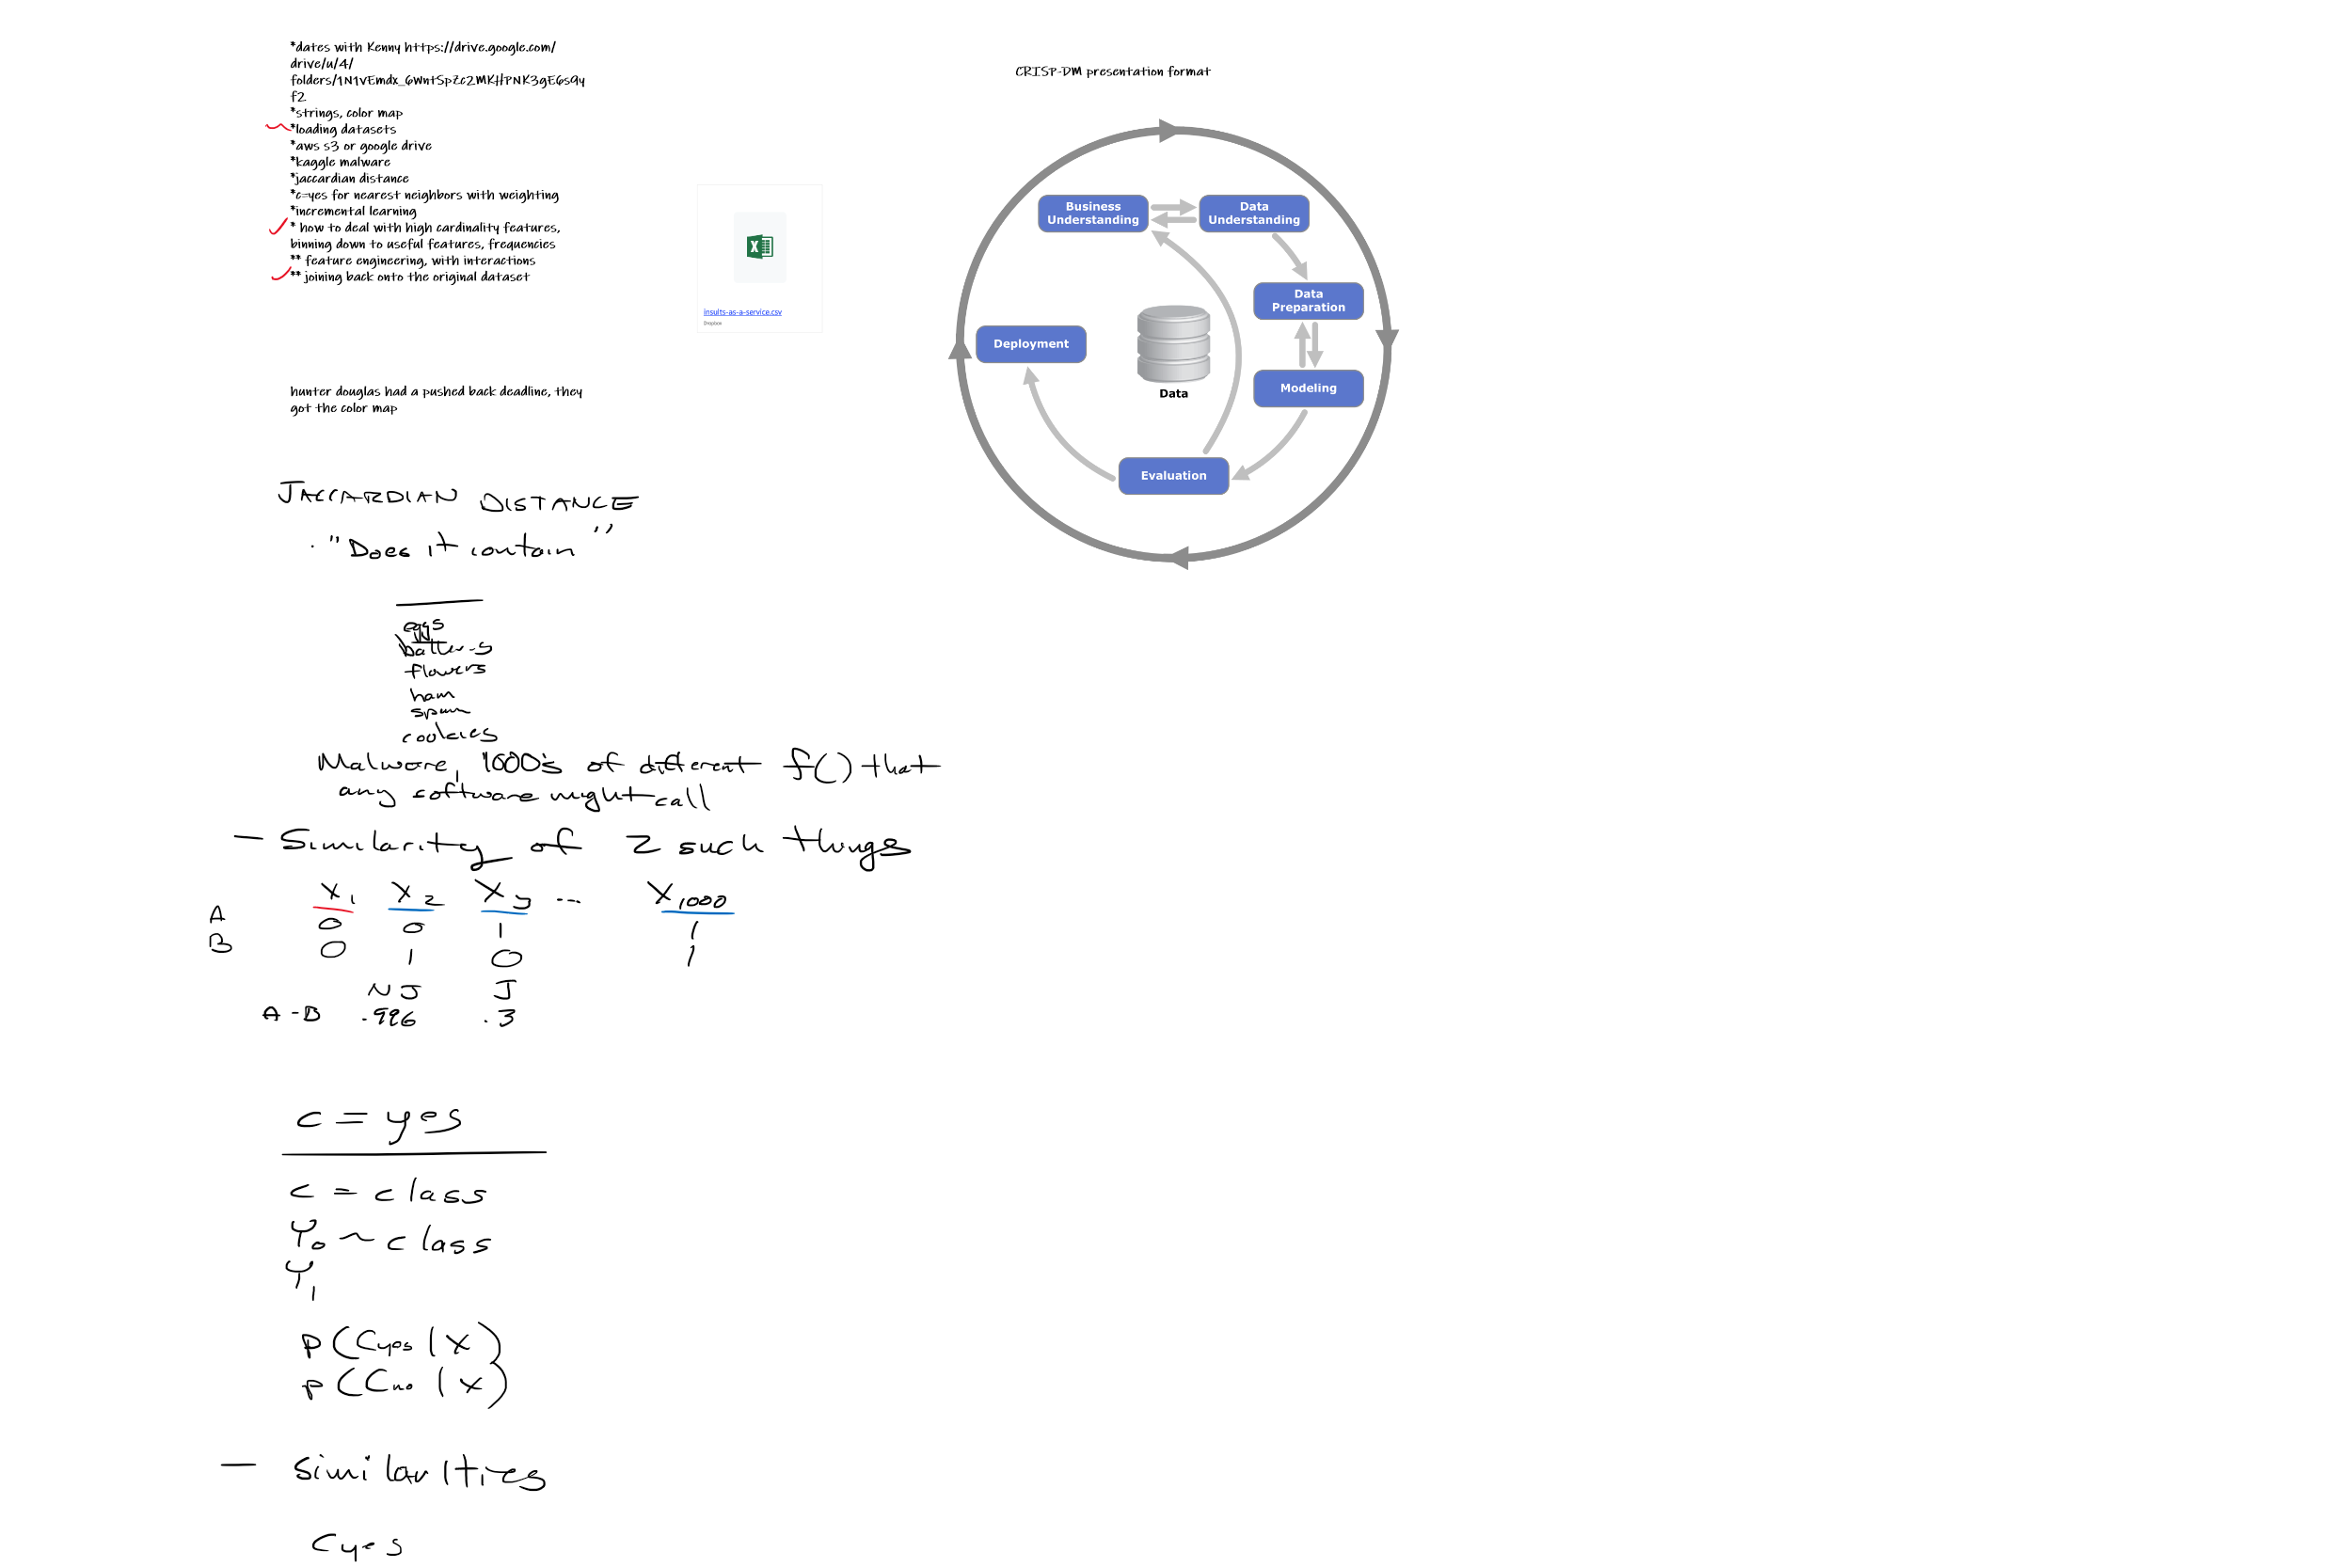 *dates with Kenny https://drive.google.com/
drive/u/4/
folders/1N1vEmdx_6WntSpZc2MKHPNK3gE6s9y
f2
*strings, color map
*loading datasets
*aws s3 or google drive
*kaggle malware
*jaccardian distance
*c=yes for nearest neighbors with weighting
*incremental learning
* how to deal with high cardinality features,
binning down to useful features, frequencies
** feature engineering, with interactions
** joining back onto the original dataset
insults-as-a-service.csv
Dropbox
hunter douglas had a pushed back deadline, they
got the color map
CRISP-DM presentation format
Business
Understanding
Data
Understanding
Data
Preparation
Modeling
Evaluation
Deployment
Data
JACCARDIAN DISTANCE
· "Does it contain"
eggs
flowers
ham
spam
cookies
Malware, 1000's of different f() that
any software might call
— Similarity of 2 such things
X1 X2 X3 ... X1000
A 0 0 1 1
B 0 1 0 1
NJ J
A-B .996 .3
c = yes
c = class
Y0 ~ class
Y1
p(Cyes | X)
p(Cno | X)
— Similarities
Cyes